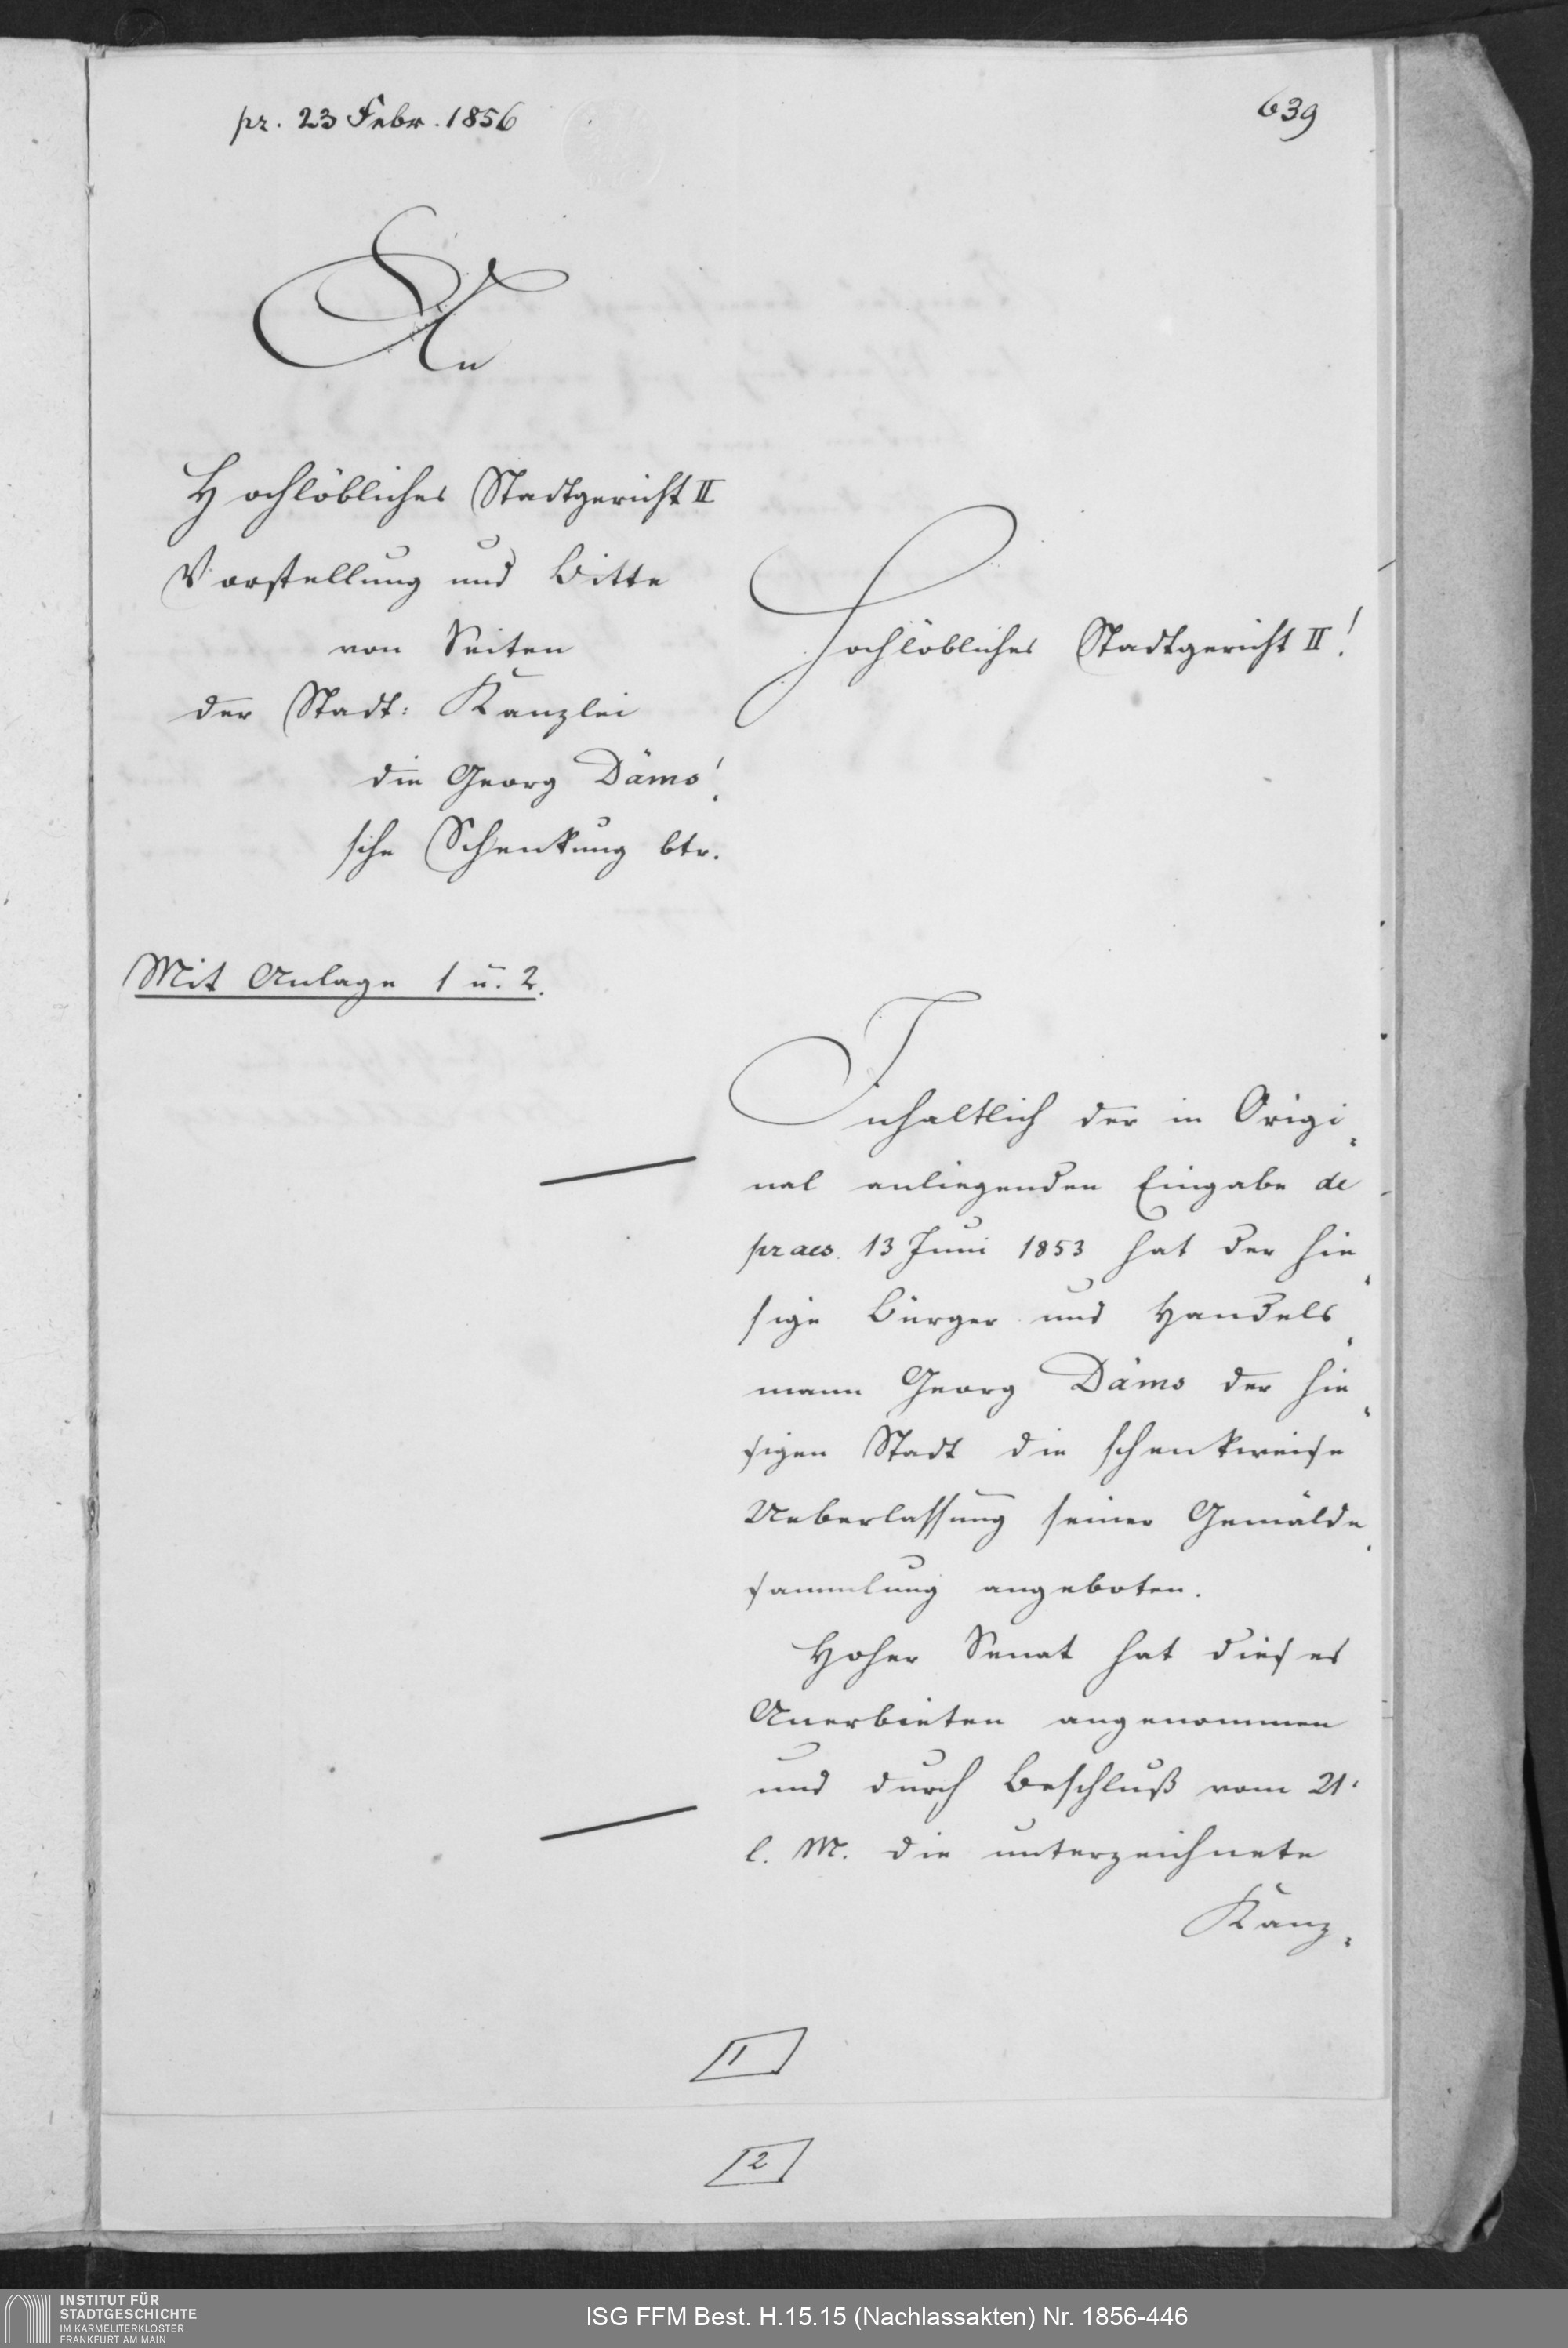 pr. 23 Febr. 1856
639
An
Hochlöbliches Stadtgericht II
Vorstellung und Bitte
von Seiten
der Stadt: Kanzlei
die Georg Däms'
sche Schenkung btr.
Mit Anlage 1 u. 2.
Hochlöbliches Stadtgericht II!
Inhaltlich der in Origi-
nal anliegenden Eingabe de
praes. 13 Juni 1853 hat der hie-
sige Bürger und Handels-
mann Georg Däms der hie-
sigen Stadt die schenkweise
Ueberlassung seiner Gemälde-
sammlung angeboten.
Hoher Senat hat dieses
Anerbieten angenommen
und durch Beschluß vom 21.
l. M. die unterzeichnete
Kanz-
1
2
INSTITUT FÜR
STADTGESCHICHTE
IM KARMELITERKLOSTER
FRANKFURT AM MAIN
ISG FFM Best. H.15.15 (Nachlassakten) Nr. 1856-446